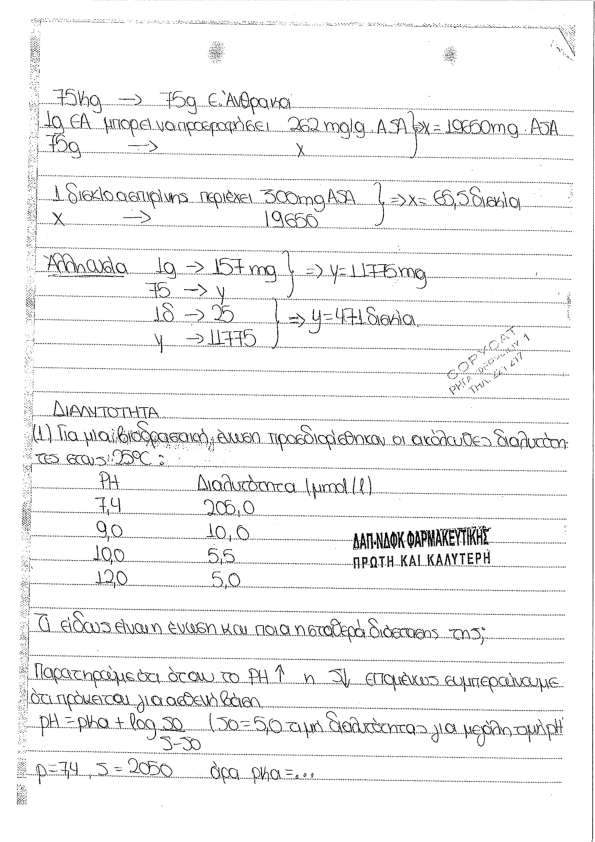 75kg → 75g Ε. Άνθρακα
1g ΕΑ μπορεί να προσροφήσει 262 mg/g ASA } ⇒ x = 19650 mg ASA
75g → x
1 δισκίο ασπιρίνης περιέχει 300mg ASA } ⇒ x = 65,5 δισκία
x → 19650
1g → 157 mg } ⇒ y = 11775mg
75 → y
1δ → 25 } ⇒ y = 471 δισκία.
y → 11775
COPYCAT
ΔΙΑΛΥΤΟΤΗΤΑ
(1) Για μια βιοδραστική ένωση προσδιορίσθηκαν οι ακόλουθες διαλυτότη-
τες στους 25°C :
PH Διαλυτότητα (μmol/l)
7,4 205,0
9,0 10,0
ΔΑΠ-ΝΔΦΚ ΦΑΡΜΑΚΕΥΤΙΚΗΣ
10,0 5,5
ΠΡΩΤΗ ΚΑΙ ΚΑΛΥΤΕΡΗ
12,0 5,0
Τι είδους είναι η ένωση και ποια η σταθερά διάστασης της;
Παρατηρούμε ότι όταν το PH ↑ η S↓ επομένως συμπεραίνουμε
ότι πρόκειται για ασθενή βάση
pH = pka + log So/S-So (So = 5,0 τιμή διαλυτότητας για μεγάλη τιμή pH
p=7,4, S = 205,0 άρα pka = ...